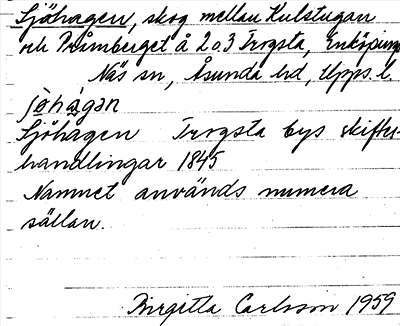 Sjöhagen, skog mellan Kulstugan
och Pråmberget å 2 o. 3 Trogsta, Enköpings
Näs sn, Åsunda hd, Upps. l.
jò̀hàgan
Sjöhagen Trogsta bys skiftes-
handlingar 1845
Namnet används numera
sällan.
Birgitta Carlsson 1959